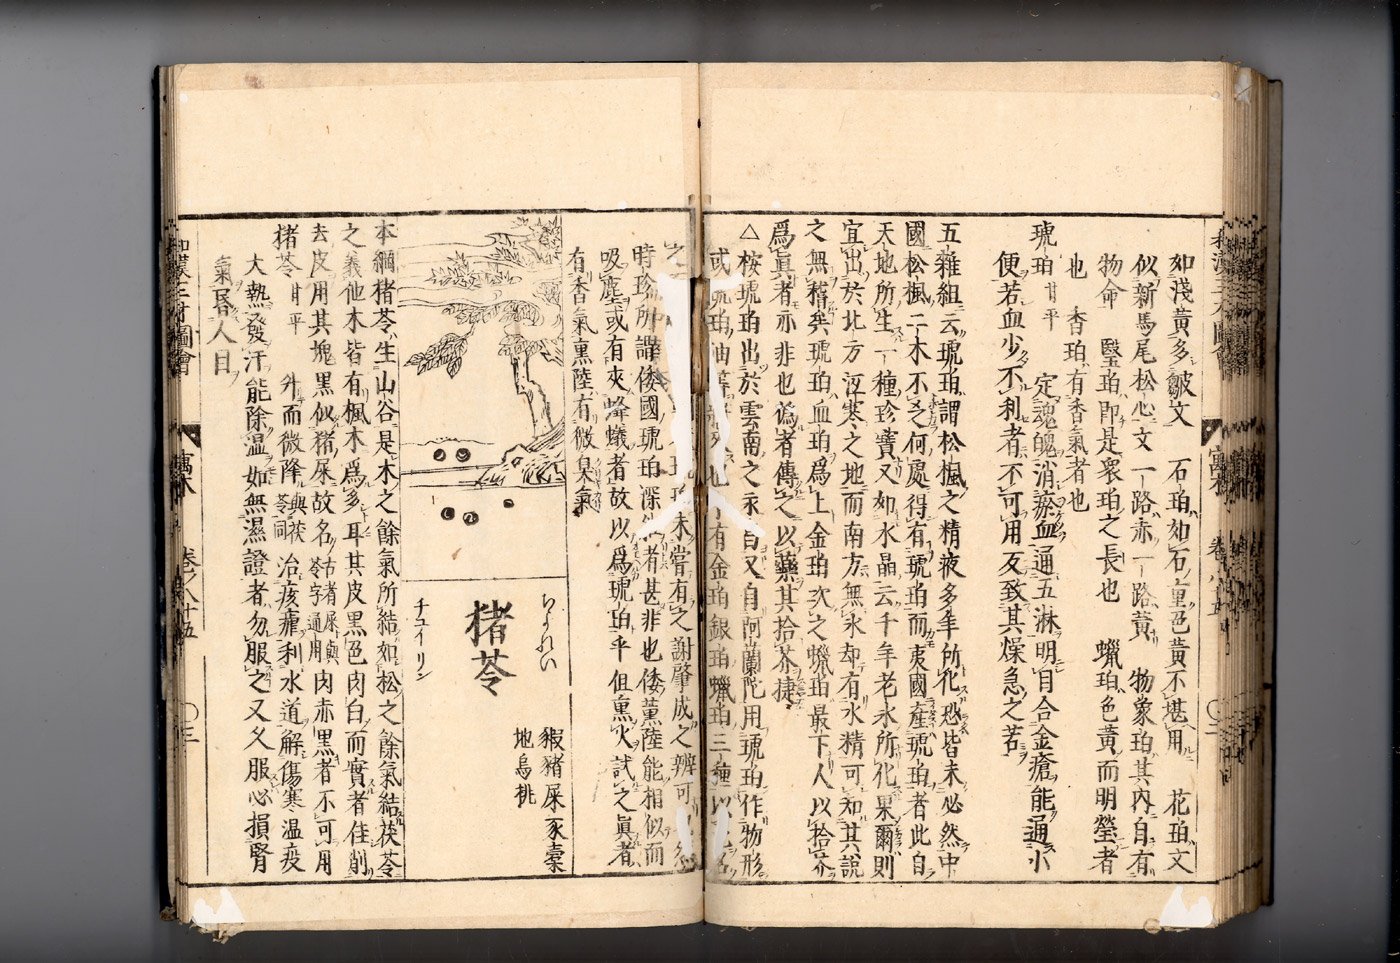 如淺黃多皺文　石珀如石重色黃不堪用　花珀文
似新馬尾松心文一路赤一路黃　物象珀其內自有
物命　瑿珀即是衆珀之長也　蠟珀色黃而明瑩者
也　香珀有香氣者也
琥珀甘平　定魂魄消瘀血通五淋明目合金瘡能通小
便若血少不利者不可用反致其燥急之苦
五雜組云琥珀謂松楓之精液多年所化恐皆未必然中
國松楓二木不乏何處得有琥珀而夷國產琥珀者此自
天地所生一種珍寶又如水晶云千年老氷所化果爾則
宜出於北方沍寒之地而南方無氷却有水精可知其說
之無稽矣琥珀血珀爲上金珀次之蠟珀最下人以拾芥
爲眞者亦非也僞者傳之以藥其拾芥捷
△桉琥珀出於雲南之永昌又自阿蘭陀用琥珀作物形
時珍所謂倭國琥珀深者甚非也倭薫陸能相似而
吸塵或有夾蜂蟻者故以爲琥珀乎但熏火試之眞者
有香氣熏陸有微臭氣
ちよれい
猪苓
チユイ リン
豭猪屎 豕橐
地烏桃
本綱猪苓生山谷是木之餘氣所結如松之餘氣結茯苓
之義他木皆有楓木爲多耳其皮黒色肉白而實者佳削
去皮用其塊黒似猪屎故名古者屎與苓字通用肉赤黒者不可用
猪苓甘平　升而微降與茯苓同　治痎瘧利水道解傷寒温疫
大熱發汗能除湿如無濕證者勿服之又久服必損腎
氣昏人目
和漢三才圖會　寓木　卷之八十五　〇三